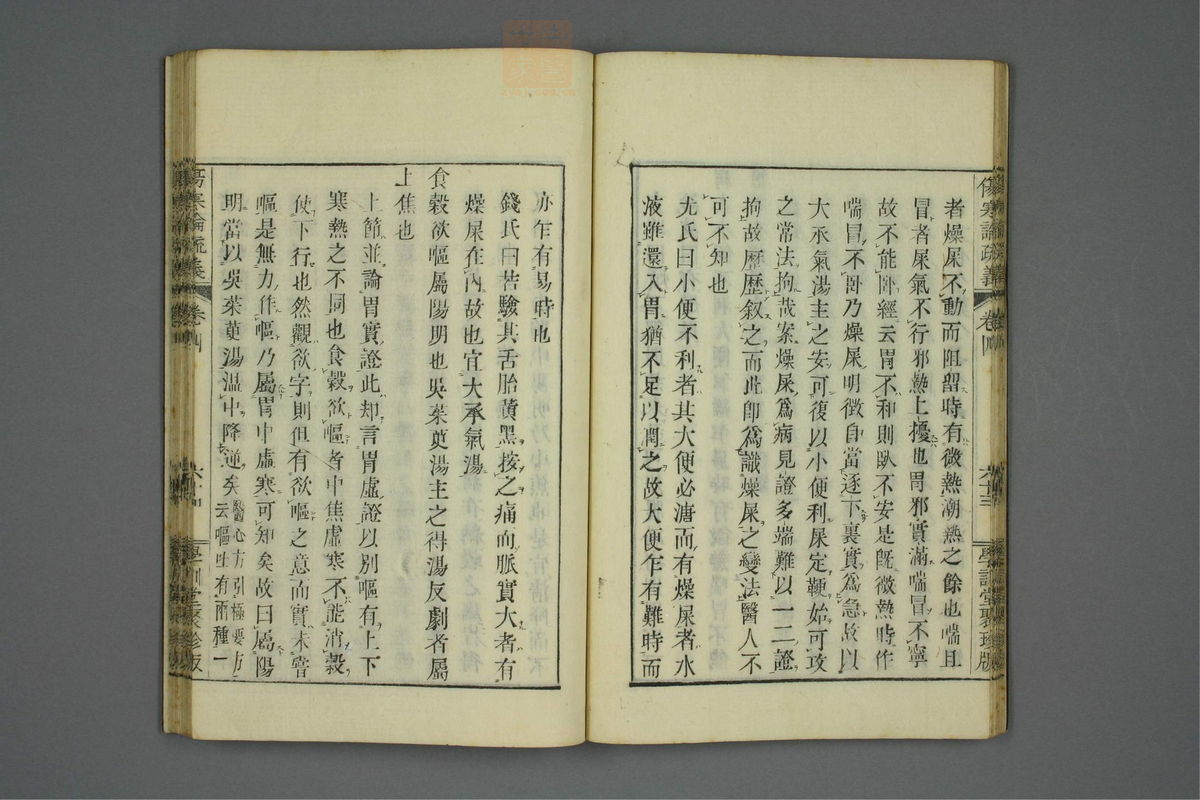 傷寒論疏義 卷四 六十三 學訓堂聚珍版
者燥屎不動而阻留時有微熱潮熱之餘也喘且
冒者屎氣不行邪熱上擾也胃邪實滿喘冒不寧
故不能臥經云胃不和則臥不安是旣微熱時作
喘冒不臥乃燥屎明徵自當逐下裏實爲急故以
大承氣湯主之安可復以小便利屎定鞕始可攻
之常法拘哉案燥屎爲病見證多端難以一二證
拘故歷歷叙之而此卽爲識燥屎之變法醫人不
可不知也
尤氏曰小便不利者其大便必溏而有燥屎者水
液雖還入胃猶不足以潤之故大便乍有難時而
亦乍有易時也
錢氏曰若驗其舌胎黃黑按之痛而脈實大者有
燥屎在內故也宜大承氣湯
食穀欲嘔屬陽明也吳茱萸湯主之得湯反劇者屬
上焦也
上節並論胃實證此却言胃虛證以別嘔有上下
寒熱之不同也食穀欲嘔者中焦虛寒不能消穀
使下行也然觀欲字則但有欲嘔之意而實未嘗
嘔是無力作嘔乃屬胃中虛寒可知矣故曰屬陽
明當以吳茱萸湯溫中降逆矣醫心方引極要方
云嘔吐有兩種一
傷寒論疏義 卷四 六十四 學訓堂聚珍版